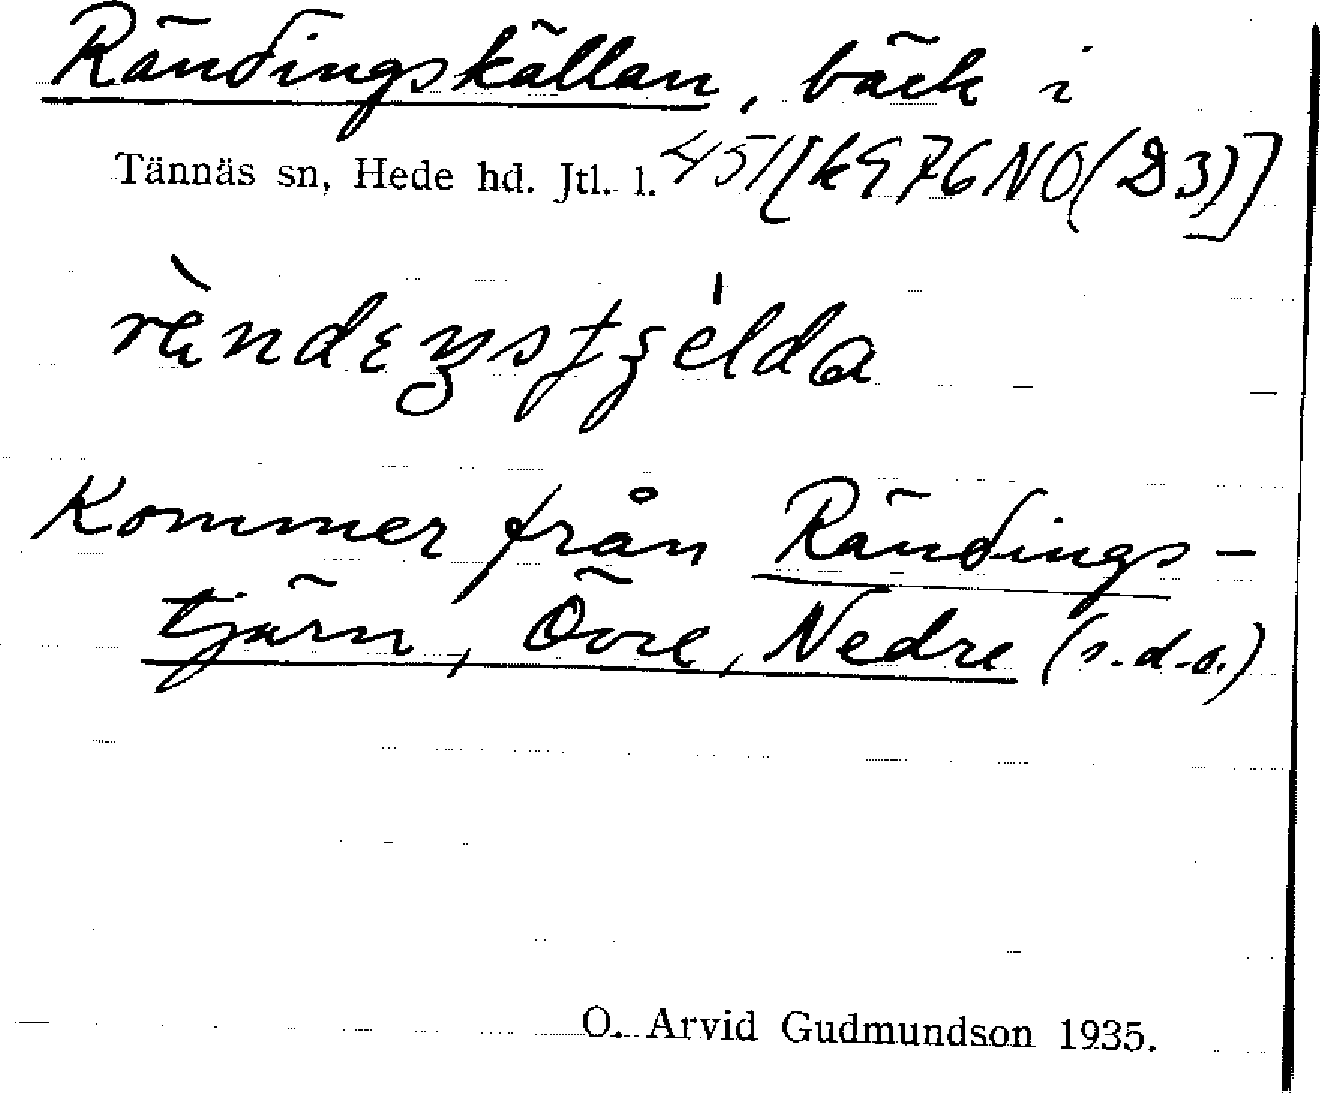 Rändingskällan, bäck i
Tännäs sn, Hede hd. Jtl. l. 451 [k976NO(D3)]
Kommer från Rändings-
tjärn, Övre, Nedre (s.d.o.)
O. Arvid Gudmundson 1935.